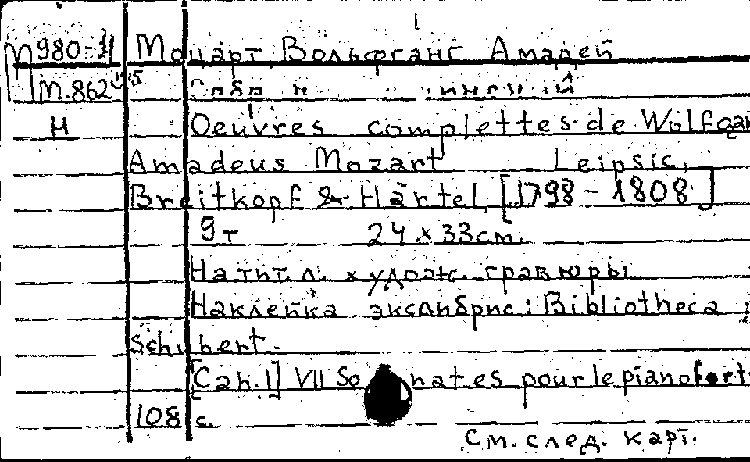 М980-И Моцарт, Вольфганг Амадей
М.862
И Oeuvres complettes de Wolfgan
Amadeus Mozart Leipsic,
Breitkopf & Härtel, [1798-1808]
9т 24х33см.
На тит. л. худож. гравюры
Наклейка экслибрис: Bibliotheca
Schubert.
[Cah. 1] VII Sonates pour le pianofort
108 с.
См. след. карт.